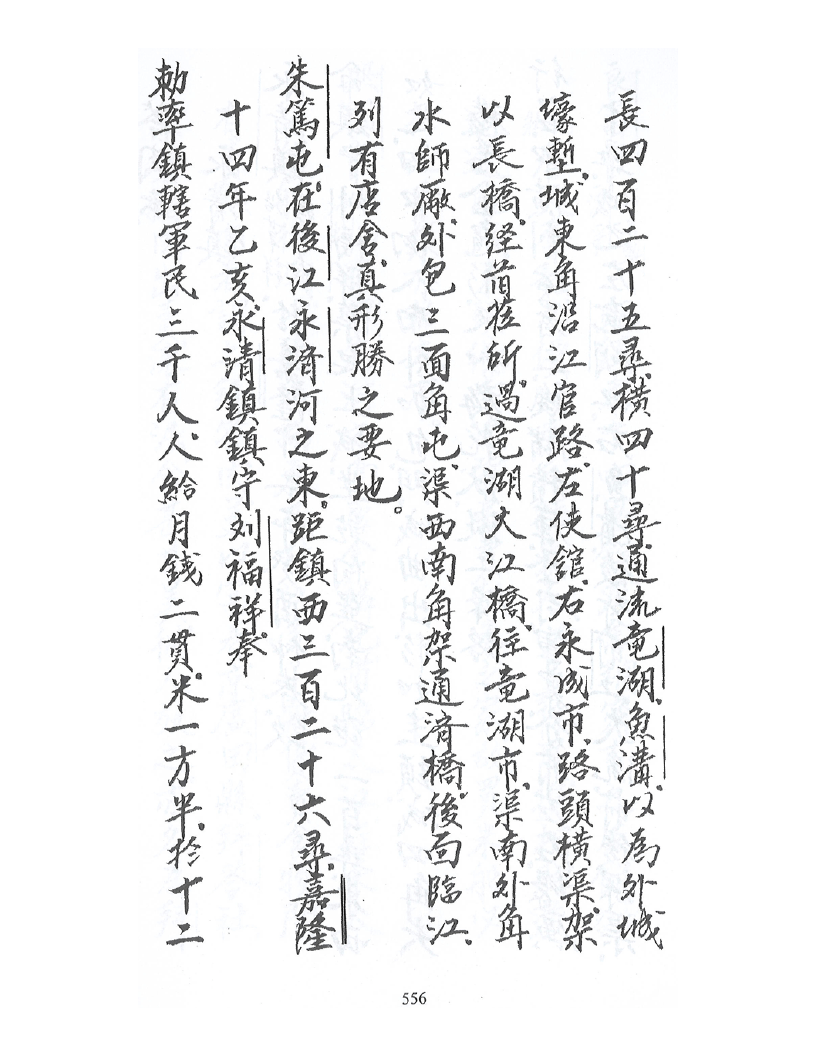 長四百二十五尋、橫四十尋、通流竜湖、魚溝、以為外城
壕塹。城東角沿江官路。左使館。右永成市、路頭橫渠。架
以長橋。経苜蓿所。過竜湖大江橋、往竜湖市、渠南外角
水師廠、外包三面角屯、渠西南角架通済橋。後面臨江、
列有店舍、真形勝之要地。
朱篤屯。在後江永濟河之東。距鎮西三百二十六尋。嘉隆
十四年乙亥、永清鎮鎮守刘福祥。奉
勅率鎮轄軍民三千人、人給月錢二貫。米一方半。於十二
556